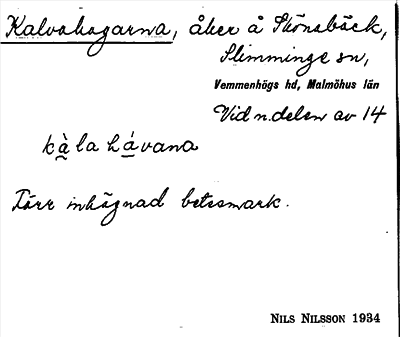 Kalvahagarna, åker å Skönabäck,
Slimminge sn,
Vemmenhögs hd, Malmöhus län
Vid n.delen av 14
kà̰la há̰vana
Förr inhägnad betesmark.
NILS NILSSON 1934